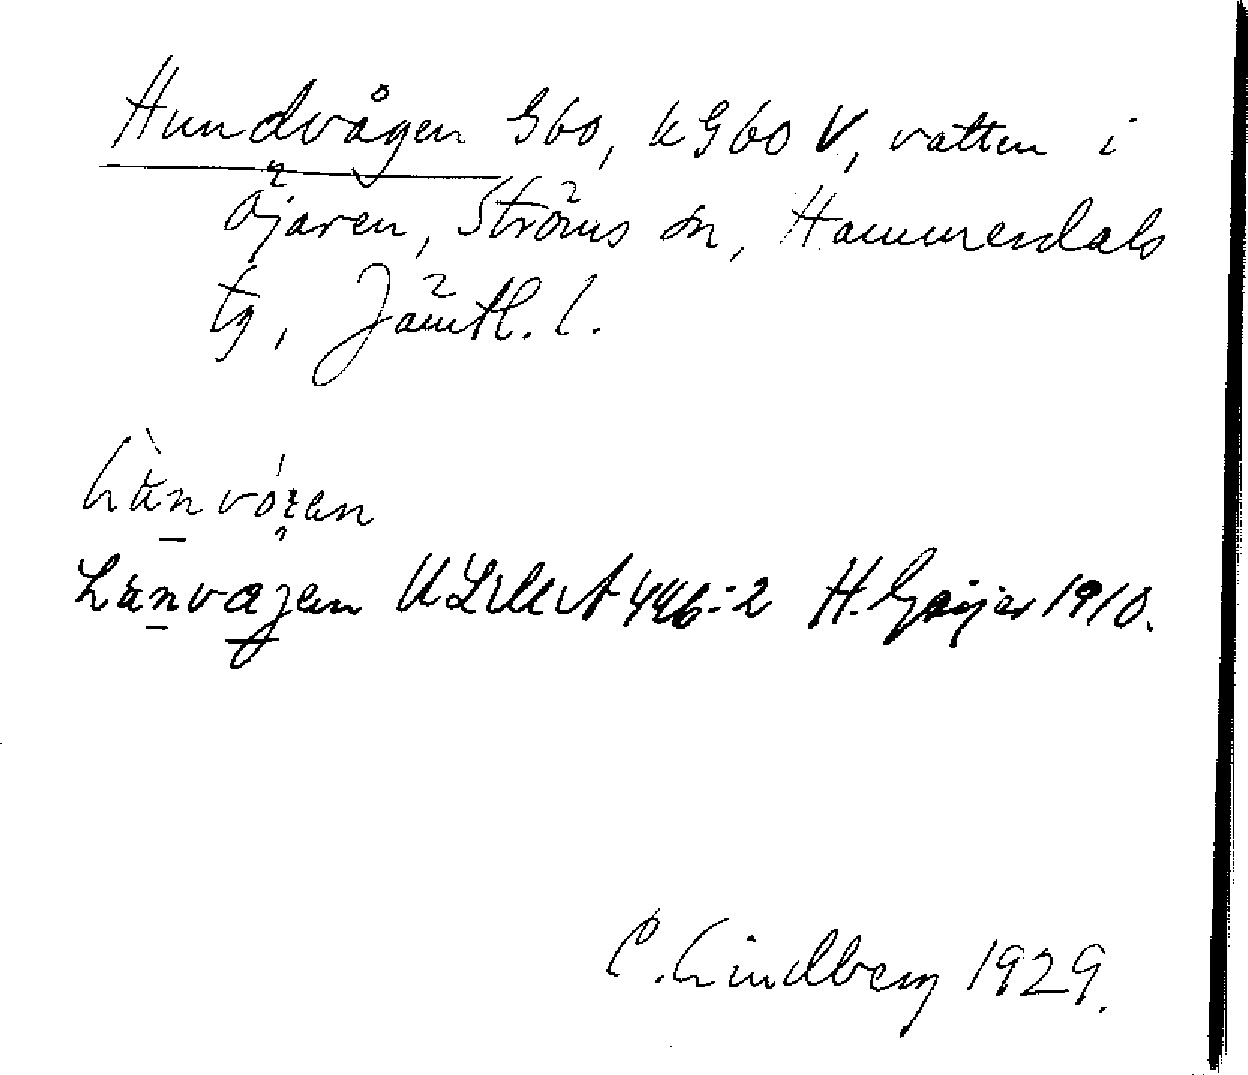 Hundvågen G60, kG60 V, vatten i
Öjaren, Ströms sn, Hammerdals
tg, Jämtl. l.
Länvagen ULMA 446:2 H. Geijer 1910.
C. Lindberg 1929.